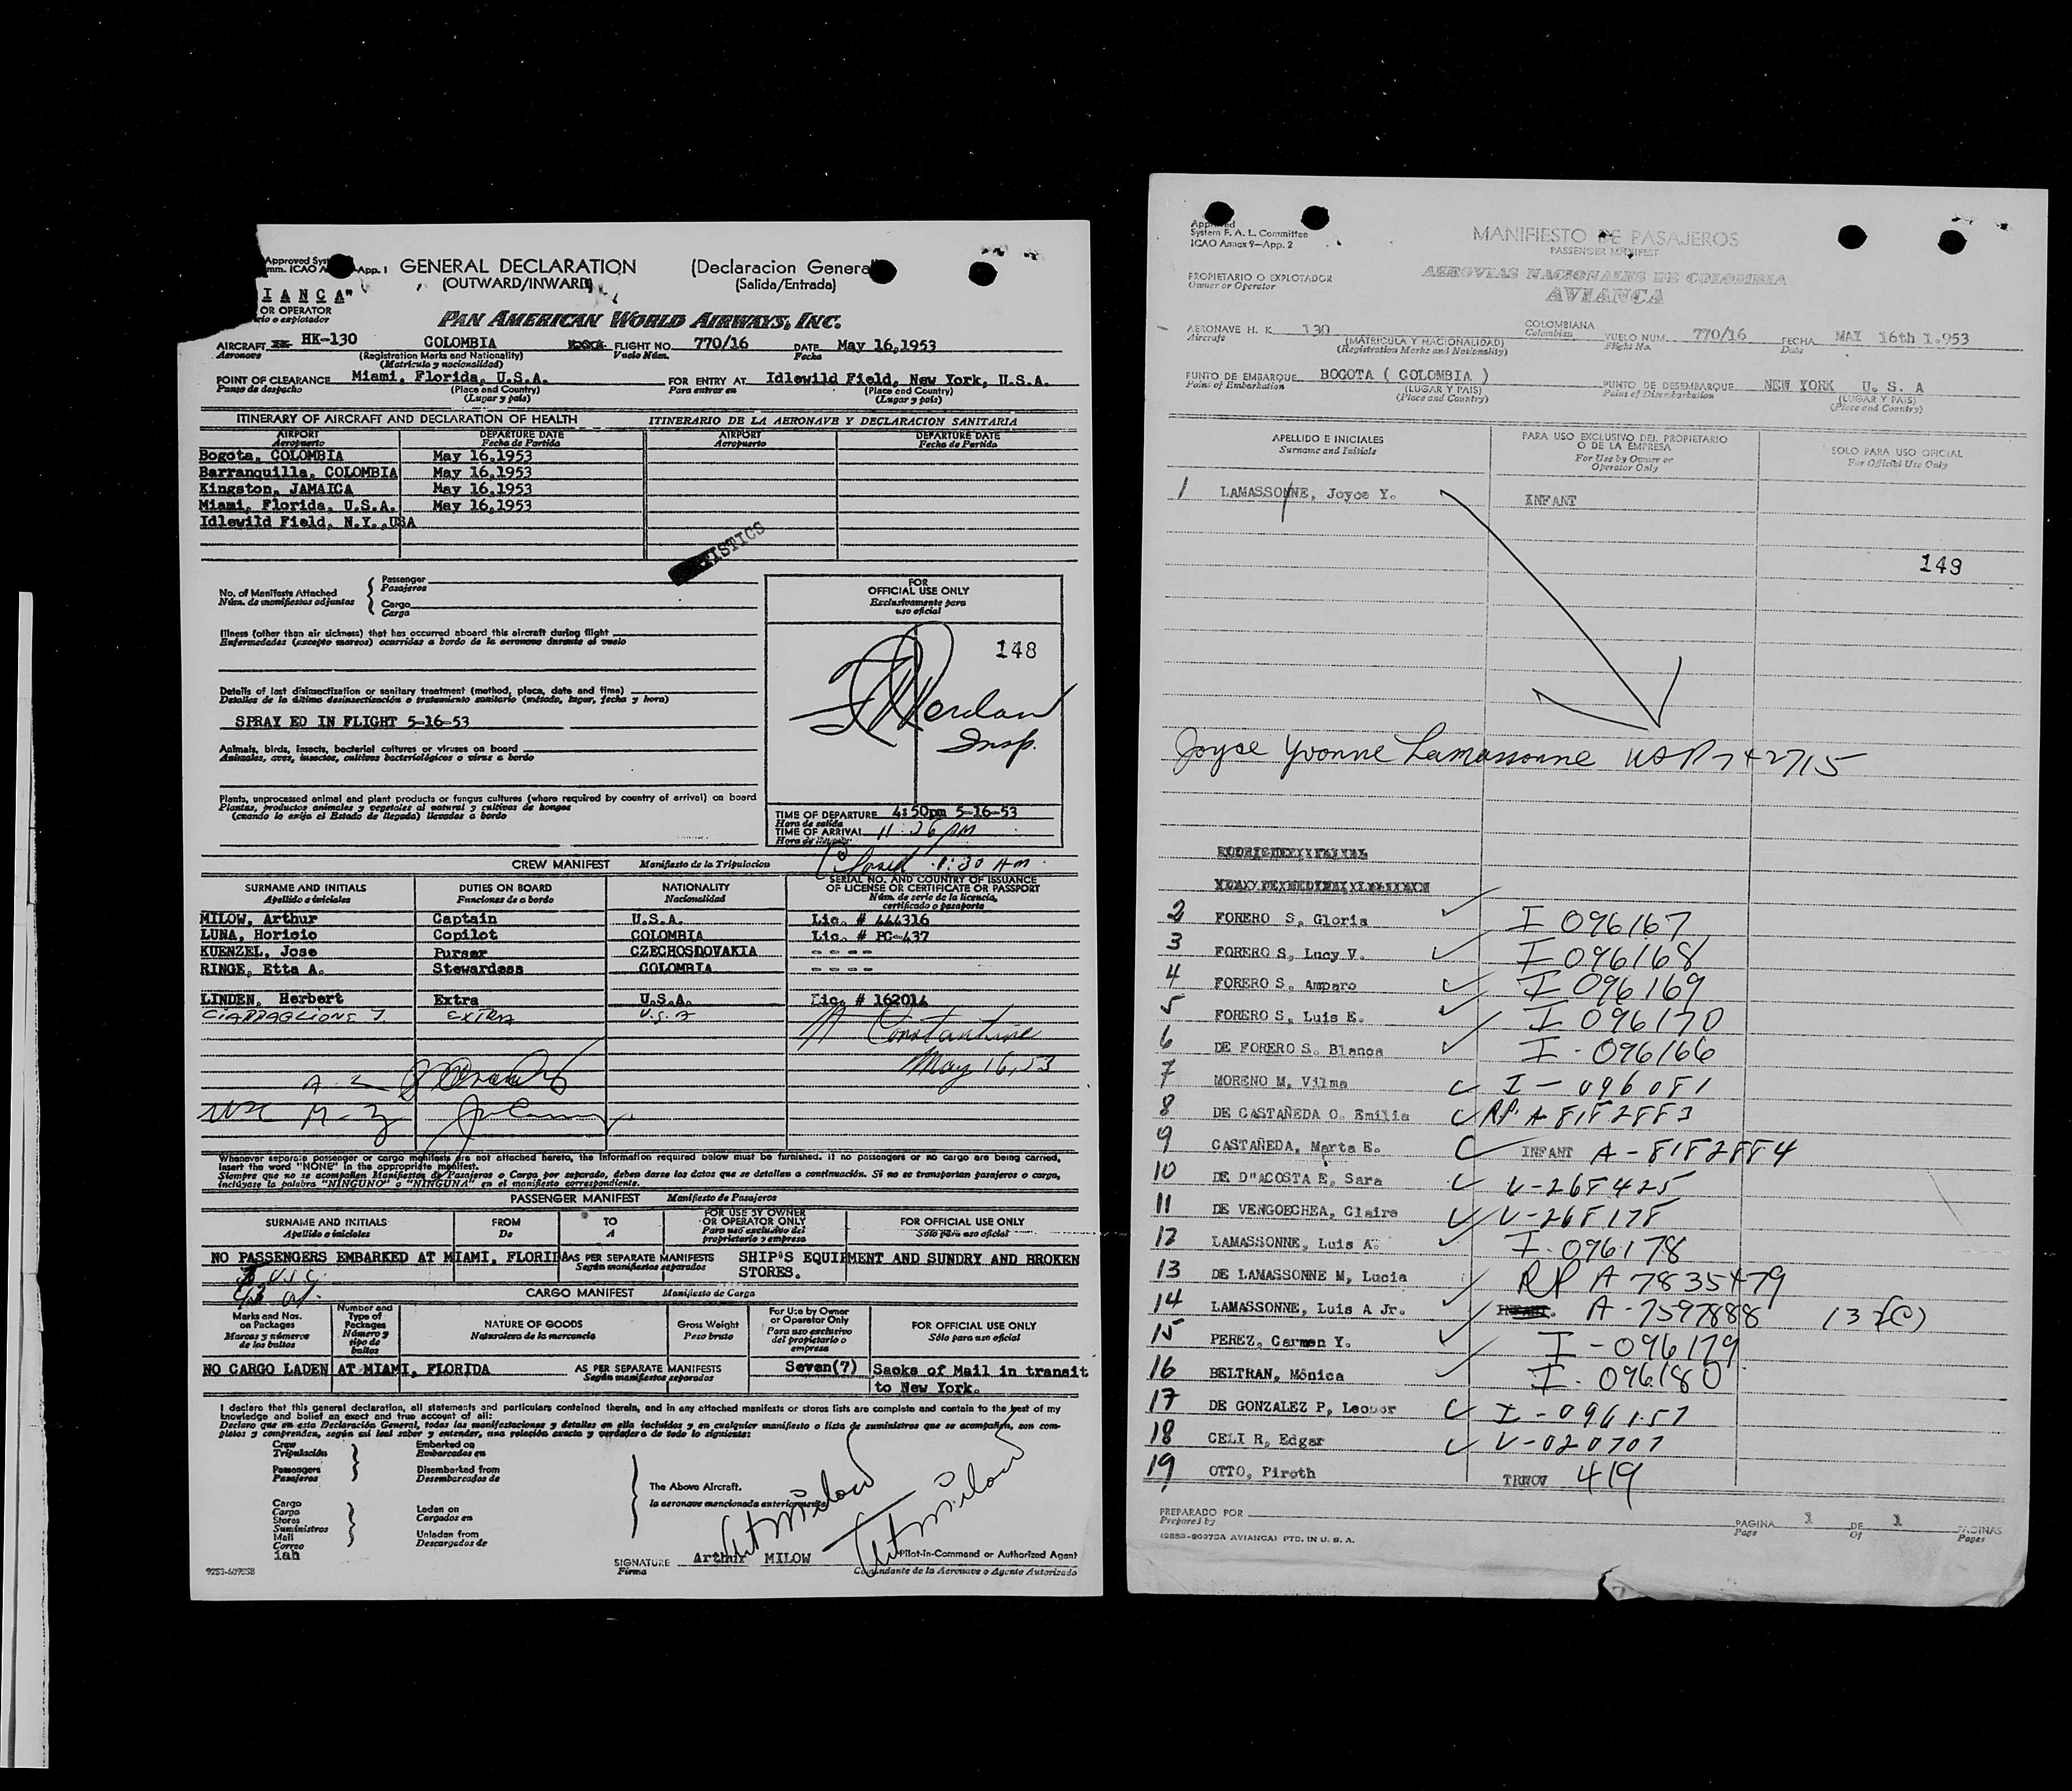 Approved Sys
mm. ICAO A App. 1
GENERAL DECLARATION (Declaracion General
(OUTWARD/INWARD) (Salida/Entrada)
IANCA"
OR OPERATOR
rio o explotador
PAN AMERICAN WORLD AIRWAYS, INC.
AIRCRAFT HK-130 COLOMBIA FLIGHT NO. 770/16 DATE May 16,1953
Aeronave (Registration Marks and Nationality) Vuelo Núm. Fecha
(Matrícula y nacionalidad)
POINT OF CLEARANCE Miami, Florida, U.S.A. FOR ENTRY AT Idlewild Field, New York, U.S.A.
Punto de despacho (Place and Country) Para entrar en (Place and Country)
(Lugar y país) (Lugar y país)
ITINERARY OF AIRCRAFT AND DECLARATION OF HEALTH ITINERARIO DE LA AERONAVE Y DECLARACION SANITARIA
AIRPORT DEPARTURE DATE AIRPORT DEPARTURE DATE
Aeropuerto Fecha de Partida Aeropuerto Fecha de Partida
Bogota, COLOMBIA May 16,1953
Barranquilla, COLOMBIA May 16,1953
Kingston, JAMAICA May 16,1953
Miami, Florida, U.S.A. May 16,1953
Idlewild Field, N.Y.,USA
TISTICS
No. of Manifests Attached Passenger
Núm. de manifiestos adjuntos Pasajeros
Cargo
Carga
FOR
OFFICIAL USE ONLY
Exclusivamente para
uso oficial
Illness (other than air sickness) that has occurred aboard this aircraft during flight
Enfermedades (excepto mareos) ocurridas a bordo de la aeronave durante el vuelo
148
Insp.
Details of last disinsectization or sanitary treatment (method, place, date and time)
Detalles de la última desinsectización o tratamiento sanitario (método, lugar, fecha y hora)
SPRAY ED IN FLIGHT 5-16-53
Animals, birds, insects, bacterial cultures or viruses on board
Animales, aves, insectos, cultivos bacteriológicos o virus a bordo
Plants, unprocessed animal and plant products or fungus cultures (where required by country of arrival) on board
Plantas, productos animales y vegetales al natural y cultivos de hongos
(cuando lo exija el Estado de llegada) llevados a bordo
TIME OF DEPARTURE 4:50pm 5-16-53
Hora de salida
TIME OF ARRIVAL 11:26 PM
Closed 1:30 AM
CREW MANIFEST Manifiesto de la Tripulacion
SURNAME AND INITIALS DUTIES ON BOARD NATIONALITY SERIAL NO. AND COUNTRY OF ISSUANCE
OF LICENSE OR CERTIFICATE OR PASSPORT
Apellido e iniciales Funciones de a bordo Nacionalidad Núm. de serie de la licencia,
certificado o pasaporte
MILOW, Arthur Captain U.S.A. Lic. # 444316
LUNA, Horicio Copilot COLOMBIA Lic. # PC-437
KUENZEL, Jose Purser CZECHOSDOVAKIA - - - -
RINGE, Etta A. Stewardess COLOMBIA - - - -
LINDEN, Herbert Extra U.S.A. Lic. # 162014
CIAPPAGLIONE J. EXTRA U.S.A
Constantine
May 16, 53
Whenever separate passenger or cargo manifests are not attached hereto, the information required below must be furnished. If no passengers or no cargo are being carried,
insert the word "NONE" in the appropriate manifest.
Siempre que no se acompañen Manifiestos de Pasajeros o Carga por separado, deben darse los datos que se detallan a continuación. Si no se transportan pasajeros o carga,
inclúyase la palabra "NINGUNO" o "NINGUNA" en el manifiesto correspondiente.
PASSENGER MANIFEST Manifiesto de Pasajeros
SURNAME AND INITIALS FROM TO FOR USE BY OWNER OR OPERATOR ONLY FOR OFFICIAL USE ONLY
Apellido e iniciales De A Para uso exclusivo del propietario o empresa Sólo para uso oficial
NO PASSENGERS EMBARKED AT MIAMI, FLORIDA AS PER SEPARATE MANIFESTS SHIP'S EQUIPMENT AND SUNDRY AND BROKEN
Según manifiestos separados STORES.
CARGO MANIFEST Manifiesto de Carga
Marks and Nos. on Packages Number and Type of Packages NATURE OF GOODS Gross Weight For Use by Owner or Operator Only FOR OFFICIAL USE ONLY
Marcas y números de los bultos Número y tipo de bultos Naturaleza de la mercancía Peso bruto Para uso exclusivo del propietario o empresa Sólo para uso oficial
NO CARGO LADEN AT MIAMI, FLORIDA AS PER SEPARATE MANIFESTS Seven(7) Sacks of Mail in transit
Según manifiestos separados to New York.
I declare that this general declaration, all statements and particulars contained therein, and in any attached manifests or stores lists are complete and contain to the best of my
knowledge and belief an exact and true account of all:
Declaro que en esta Declaración General, todas las manifestaciones y detalles en ella incluídos y en cualquier manifiesto o lista de suministros que se acompañan, son com-
pletos y comprenden, según mi leal saber y entender, una relación exacta y verdadera de todo lo siguiente:
Crew Embarked on
Tripulación Embarcados en
Passengers Disembarked from
Pasajeros Desembarcados de
The Above Aircraft.
la aeronave mencionada anteriormente
Cargo Laden on
Carga Cargados en
Stores
Suministros
Mail Unladen from
Correo Descargados de
iah
Art Milow Art Milow
SIGNATURE Arthur MILOW Pilot-in-Command or Authorized Agent
Firma Comandante de la Aeronave o Agente Autorizado
Approved
System F. A. L. Committee
ICAO Annex 9—App. 2
MANIFIESTO DE PASAJEROS
PASSENGER MANIFEST
PROPIETARIO O EXPLOTADOR
Owner or Operator
AEROVIAS NACIONALES DE COLOMBIA
AVIANCA
AERONAVE H. K. 130 COLOMBIANA VUELO NUM. 770/16 FECHA MAY 16th 1.953
Aircraft (MATRICULA Y NACIONALIDAD) Colombian Flight No. Date
(Registration Marks and Nationality)
PUNTO DE EMBARQUE BOGOTA ( COLOMBIA ) PUNTO DE DESEMBARQUE NEW YORK U. S. A
Point of Embarkation (LUGAR Y PAIS) Point of Disembarkation (LUGAR Y PAIS)
(Place and Country) (Place and Country)
APELLIDO E INICIALES PARA USO EXCLUSIVO DEL PROPIETARIO O DE LA EMPRESA SOLO PARA USO OFICIAL
Surname and Initials For Use by Owner or Operator Only For Official Use Only
1 LAMASSONNE, Joyce Y. INFANT
149
Joyce Yvonne Lamassonne USP 742715
2 FORERO S, Gloria I 096167
3 FORERO S, Lucy V. I 096168
4 FORERO S. Amparo I 096169
5 FORERO S, Luis E. I 096170
6 DE FORERO S. Blanca I-096166
7 MORENO M, Vilma I-096081
8 DE CASTAÑEDA O. Emilia RP A 8182883
9 CASTAÑEDA, Marta E. INFANT A-8182884
10 DE D"ACOSTA E, Sara V-268425
11 DE VENGOECHEA, Claire V-268178
12 LAMASSONNE, Luis A. I-096178
13 DE LAMASSONNE M, Lucia RP A 7835479
14 LAMASSONNE, Luis A Jr. A-7597888
15 PEREZ, Carmen Y. I-096179
16 BELTRAN, Mónica I-096180
17 DE GONZALEZ P, Leonor I-096157
18 CELI R, Edgar V-020707
19 OTTO, Piroth TRWOV 419
PREPARADO POR PAGINA 1 DE 1 PAGINAS
Prepared by Page Of Pages
(9253-6097CA AVIANCA) PTD. IN U. S. A.